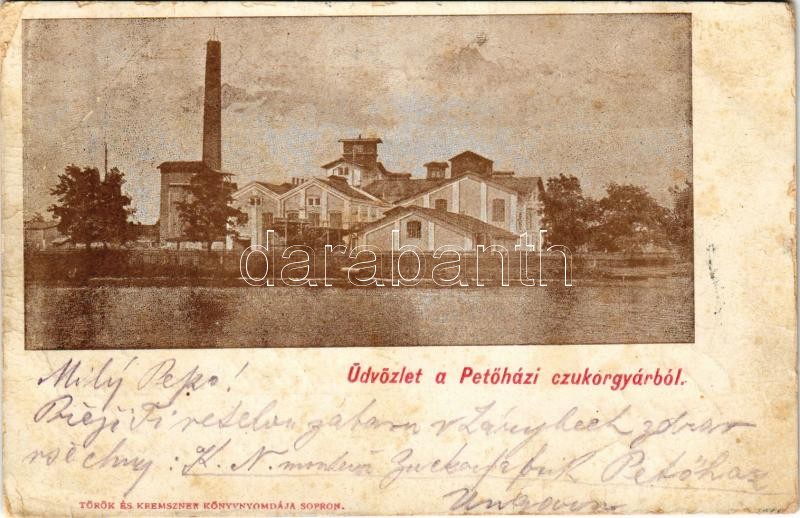 darabanth
Üdvözlet a Petőházi czukorgyárból.
Milý Pepo!
Přeji Ti veselou zábavu v Lázních zdrav
všechny: K. N. Zuckerfabrik Petőhaz
Ungarn
TÖRÖK ÉS KREMSZNER KÖNYVNYOMDÁJA SOPRON.